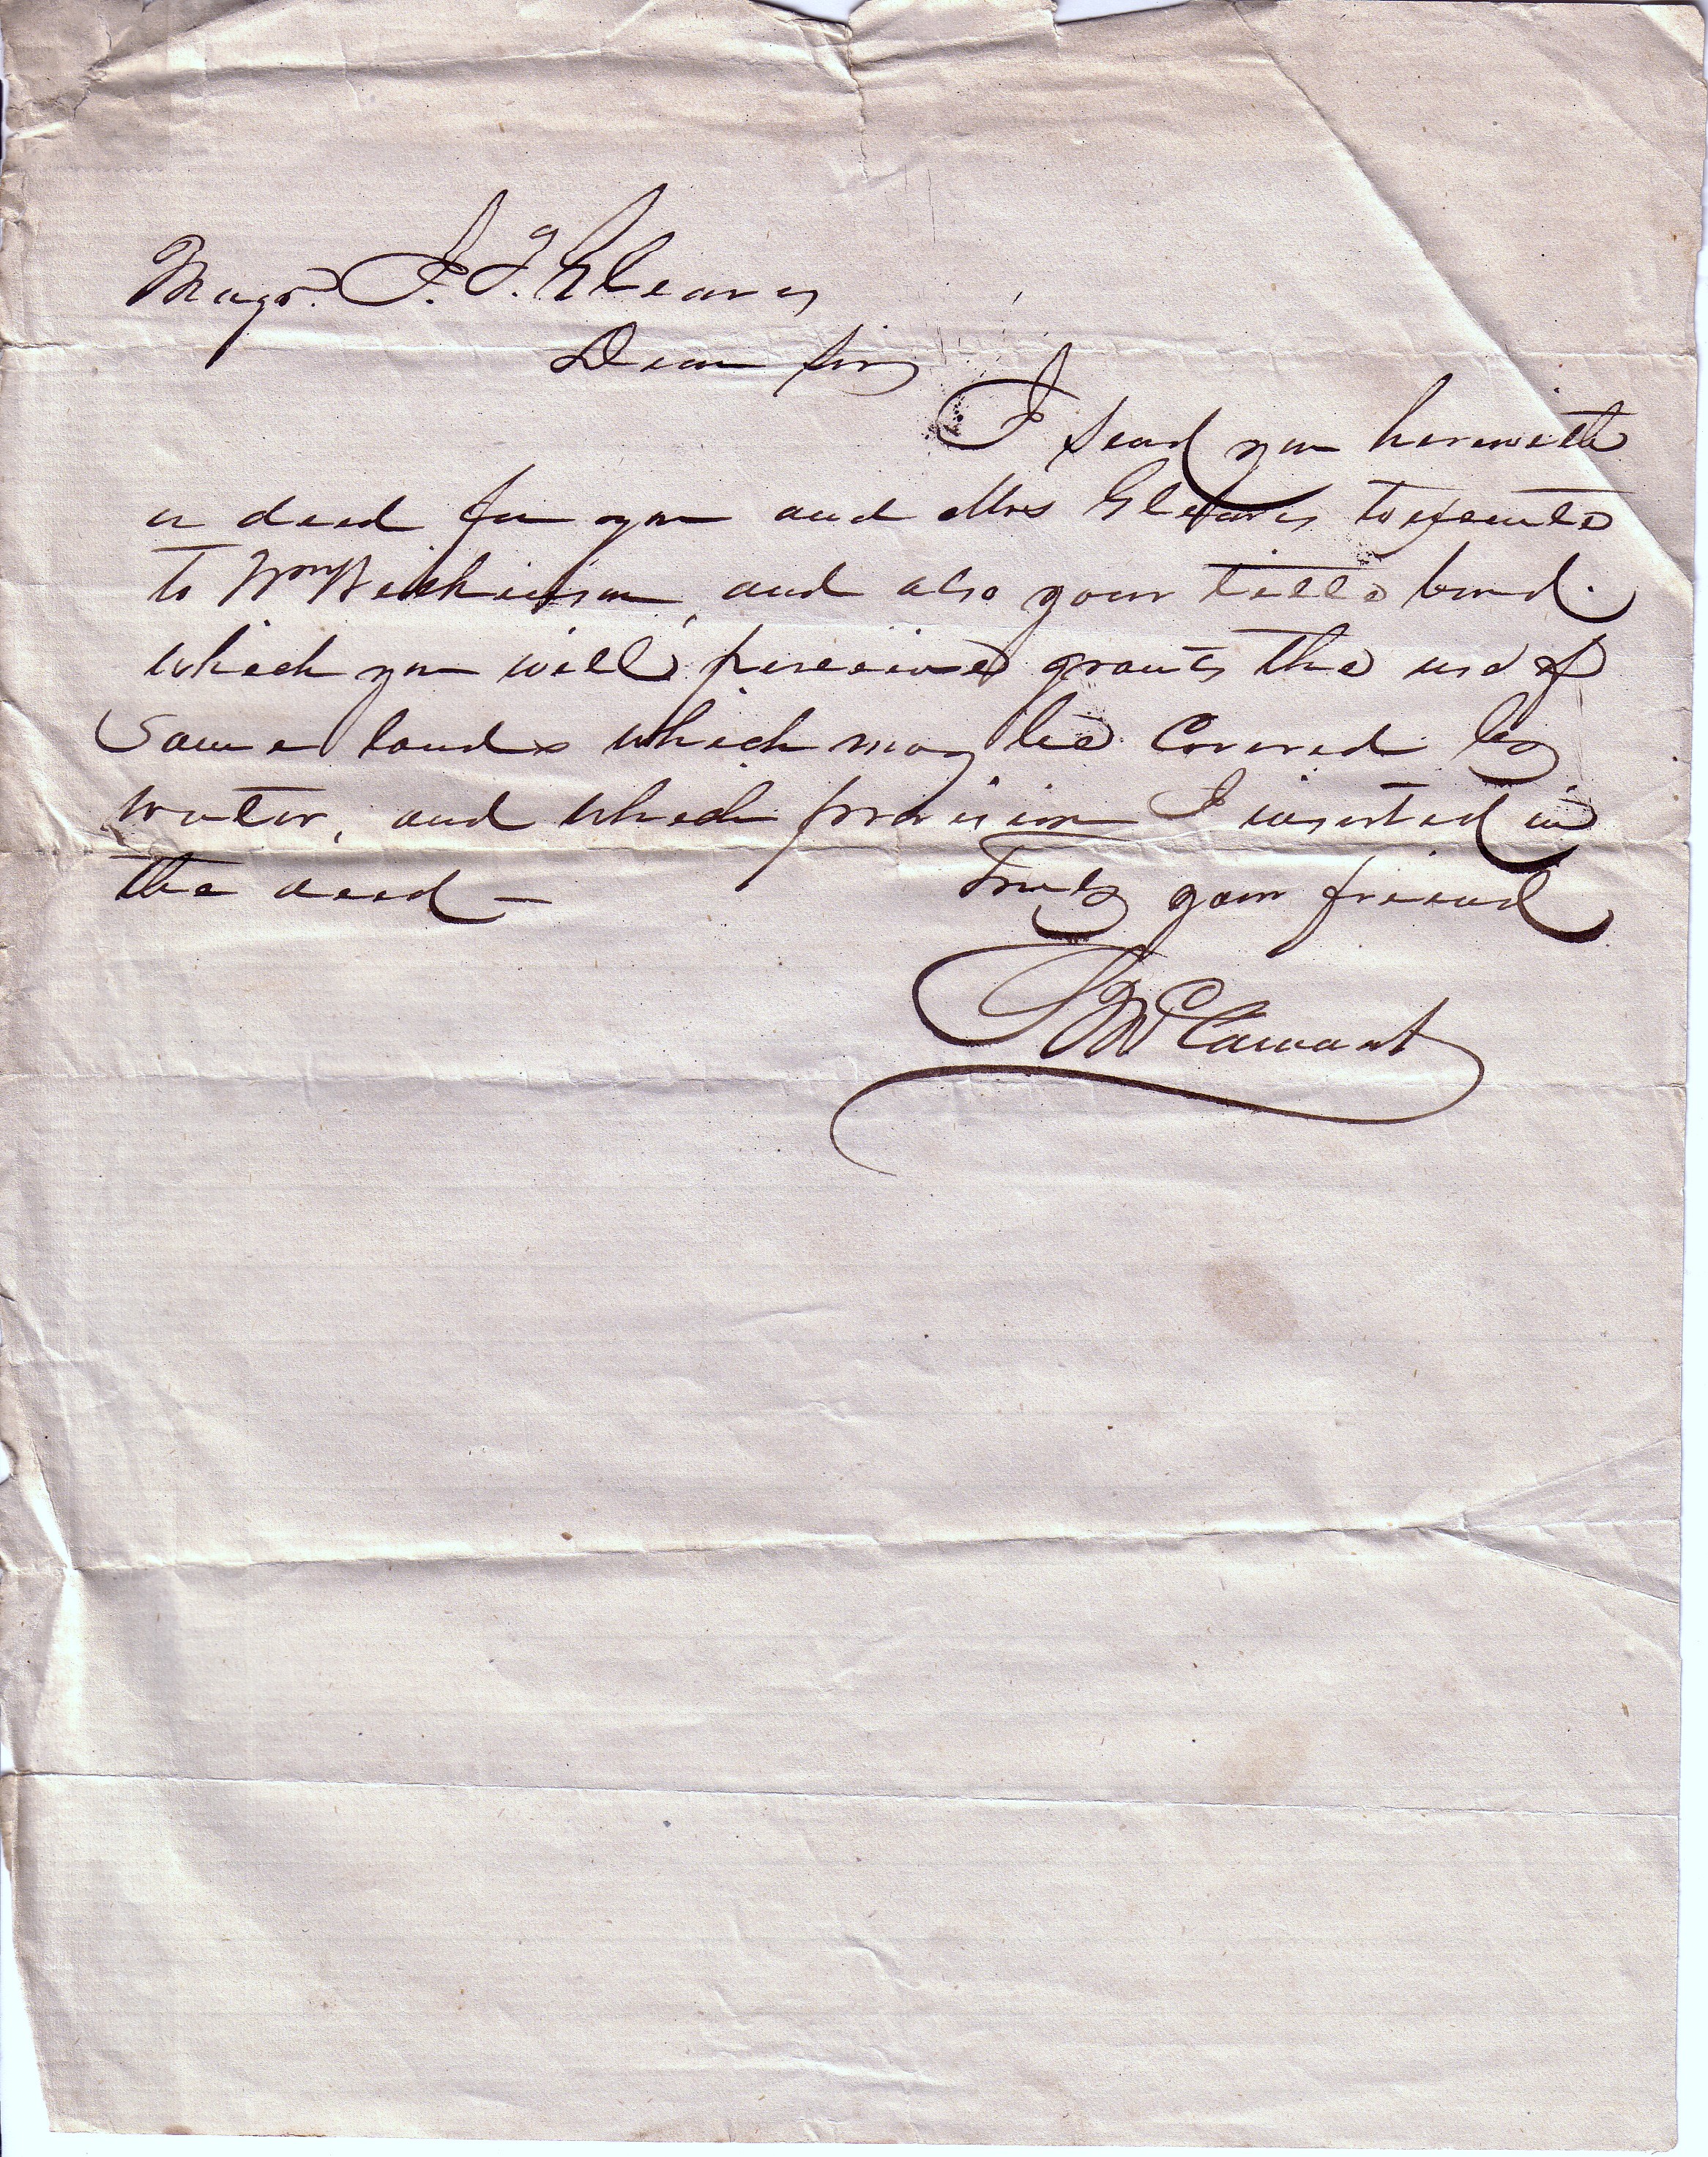 Majr. J. T. Gleaves
Dear Sir
I send you herewith
a deed for you and Mrs Gleaves to execute
to Wm and also your title bond.
which you will perceive grants the use of
some lands which may be Covered by
water, and which provision I inserted in
the deed —
Truly your friend
McCamant